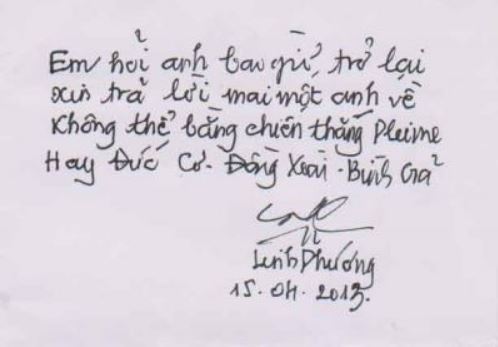 Em hỏi anh bao giờ trở lại
Xin trả lời mai một anh về
Không thể bằng chiến thắng Pleime
Hay Đức Cơ - Đồng Xoài - Bình Giả
Linh Phương
15. 04. 2013.